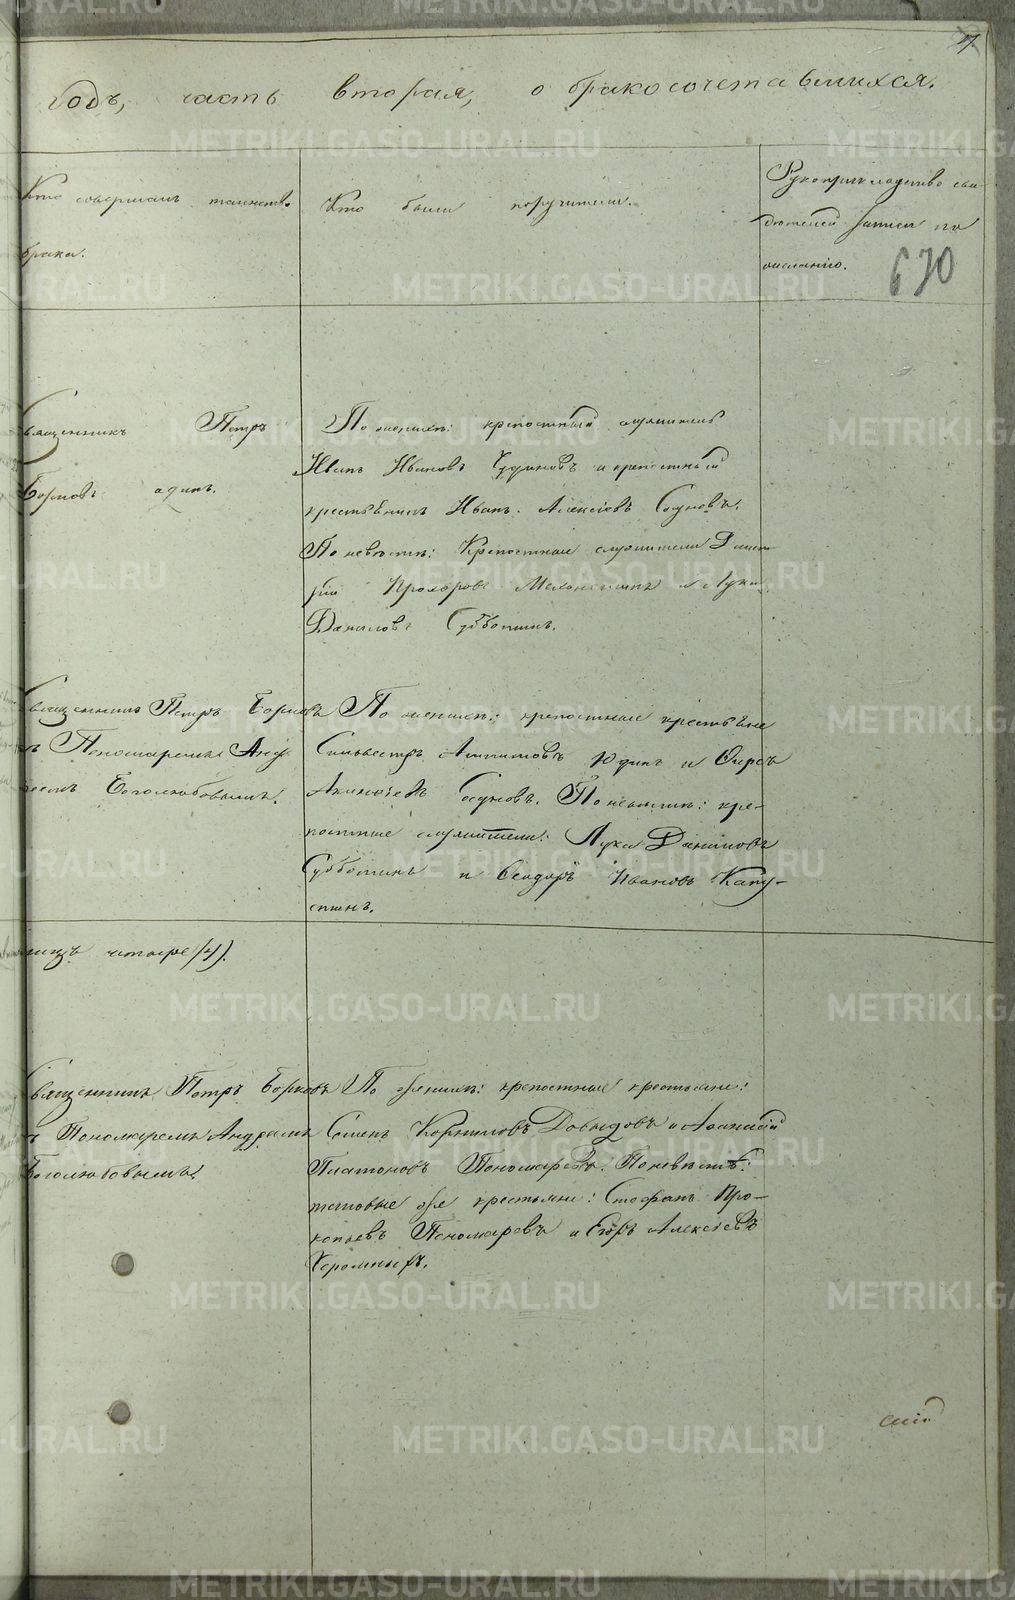 годъ, часть вторая, о бракосочетавшихся.
Кто совершалъ таинство
брака.
Кто были поручители.
Рукоприкладство сви-
дѣтелей записи по
желанію.
670
Священникъ Петръ
Борковъ одинъ.
По женихѣ: крепостный служитель
Иванъ Ивановъ и крепостный
крестьянинъ Иванъ Алексѣевъ
По невѣстѣ: Крепостные служители Дмит-
рій Прохоровъ и Лука
Даниловъ Субботинъ.
Священникъ Петръ Борковъ
съ Пономаремъ Анд-
реемъ Боголюбовымъ.
По женихѣ: крепостные крестьяне
Сильвестръ Юдинъ и
По невѣстѣ: кре-
постные служители: Лука Даниловъ
Субботинъ и Ѳеодоръ Ивановъ Капу-
стинъ.
четыре (4).
Священникъ Петръ Борковъ
съ Пономаремъ Андреемъ
Боголюбовымъ.
По женихѣ: крепостные крестьяне:
Семенъ Корниловъ Давыдовъ и Афанасій
Платоновъ Пономаревъ. По невѣстѣ:
таковые же крестьяне: Стефанъ Про-
копьевъ Пономаревъ и Егоръ Алексѣевъ
METRIKI.GASO-URAL.RU